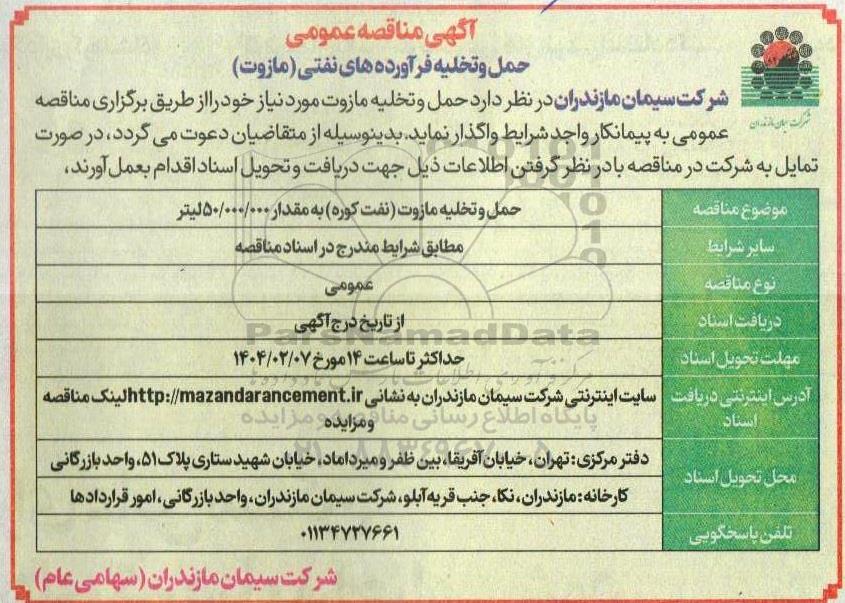 آگهی مناقصه عمومی
حمل و تخلیه فرآورده های نفتی (مازوت)
شرکت سیمان مازندران
شرکت سیمان مازندران در نظر دارد حمل و تخلیه مازوت مورد نیاز خود را از طریق برگزاری مناقصه
عمومی به پیمانکار واجد شرایط واگذار نماید. بدینوسیله از متقاضیان دعوت می گردد، در صورت
تمایل به شرکت در مناقصه با در نظر گرفتن اطلاعات ذیل جهت دریافت و تحویل اسناد اقدام بعمل آورند،
موضوع مناقصه حمل و تخلیه مازوت (نفت کوره) به مقدار ۵۰/۰۰۰/۰۰۰ لیتر
سایر شرایط مطابق شرایط مندرج در اسناد مناقصه
نوع مناقصه عمومی
دریافت اسناد از تاریخ درج آگهی
مهلت تحویل اسناد حداکثر تا ساعت ۱۴ مورخ ۱۴۰۴/۰۲/۰۷
آدرس اینترنتی دریافت اسناد سایت اینترنتی شرکت سیمان مازندران به نشانی http://mazandarancement.ir لینک مناقصه
و مزایده
محل تحویل اسناد دفتر مرکزی: تهران، خیابان آفریقا، بین ظفر و میرداماد، خیابان شهید ستاری پلاک ۵۱، واحد بازرگانی
کارخانه: مازندران، نکا، جنب قریه آبلو، شرکت سیمان مازندران، واحد بازرگانی، امور قراردادها
تلفن پاسخگویی ۰۱۱۳۴۷۲۷۶۶۱
شرکت سیمان مازندران (سهامی عام)
ParsNamadData
پایگاه اطلاع رسانی مناقصه و مزایده